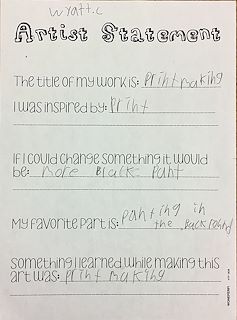 Wyatt.c
Artist Statement
The title of my work is: Print making
I was inspired by: Print
If I could change something it would
be: More Black Pant
My favorite part is: panting in
the background
Something I learned while making this
art was: Print making